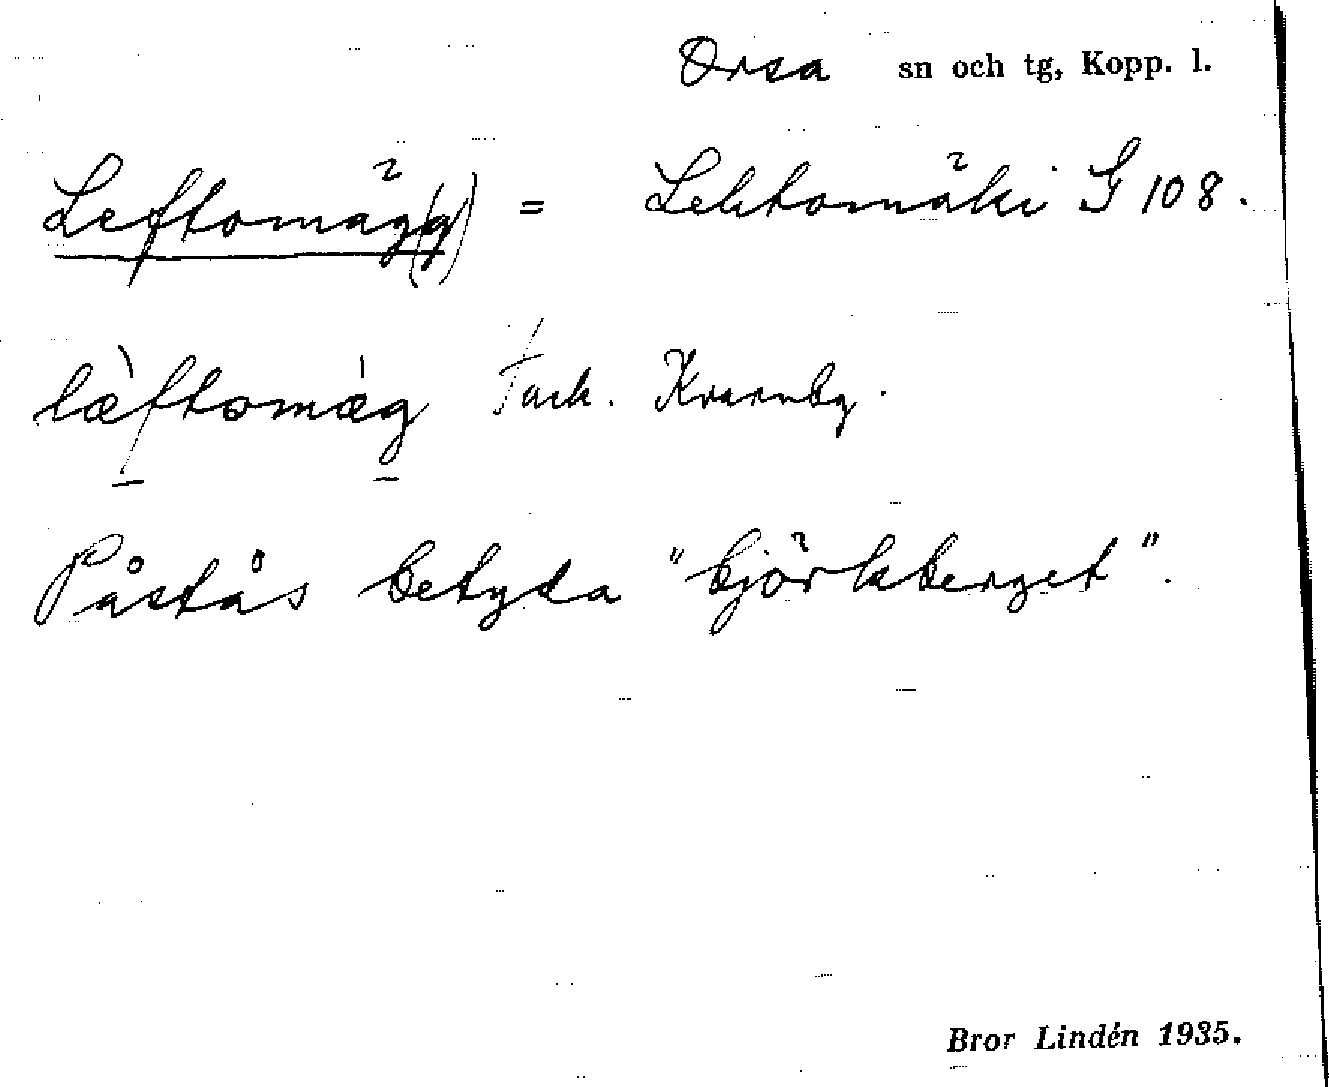 Orsa sn och tg, Kopp. l.
Leftomäg(g) = Lehtomäki G 108.
læ̀ftomæ̀g
Påstås betyda "björkberget".
Bror Lindén 1935.